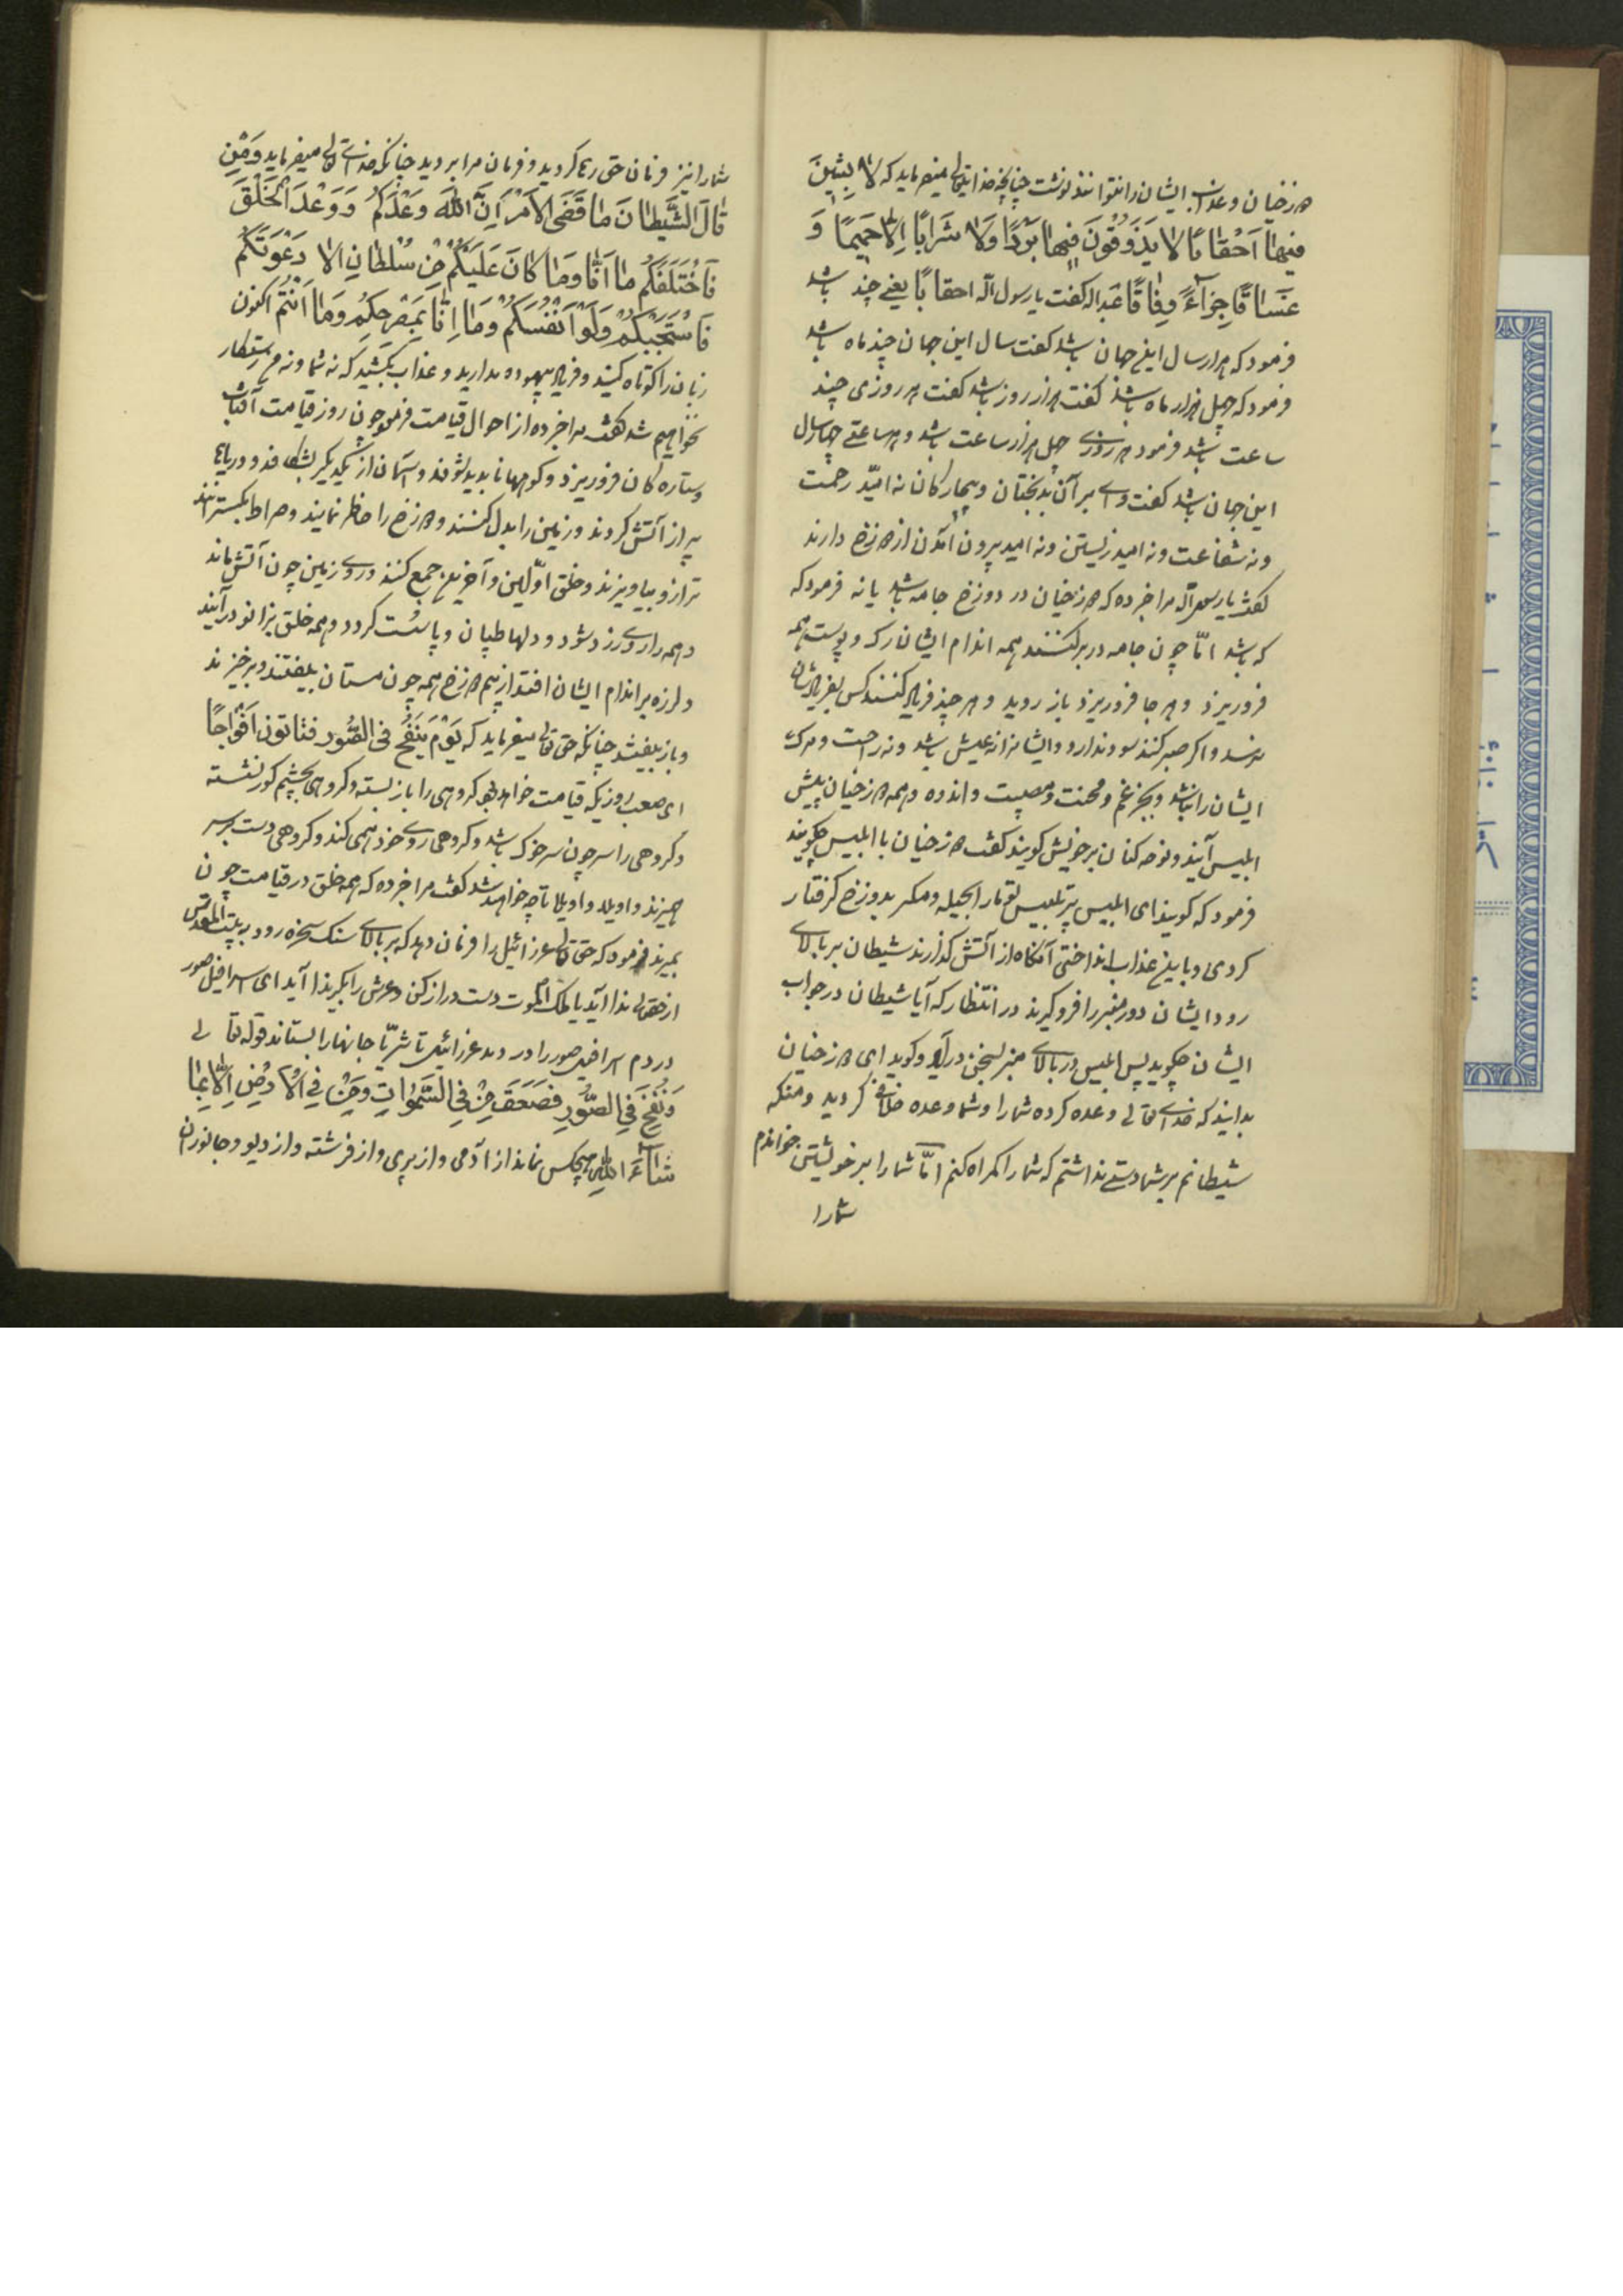 دوزخیان و عذاب ایشان را نتوانند نوشت چنانچه خدایتعالی میفرماید که لابِثِینَ
فِیها اَحْقاباً لا یَذُوقُونَ فِیها بَرْداً وَلا شَراباً اِلّا حَمِیماً وَ
غَسّاقاً جَزآءً وِفاقاً عبداله گفت یا رسول اله احقاباً یعنی چند باشد
فرمود که هزار سال اینجهان باشد گفت سال این جهان چند ماه باشد
فرمود که چهل هزار ماه باشد گفت هزار روز باشد گفت هر روزی چند
ساعت باشد فرمود هر روزی چهل هزار ساعت باشد و هر ساعتی چهار سال
این جهان باشد گفت وای بر آن بدبختان و بیچارگان نه امید رحمت
و نه شفاعت و نه امید زیستن و نه امید بیرون آمدن از دوزخ دارند
گفت یا رسول اله مرا خبر ده که دوزخیان در دوزخ جامه باشد یا نه فرمود که
که باشد امّا چون جامه در بر کنند همه اندام ایشان رک و پوست همه
فرو ریزد و هر جا فرو ریزد باز روید و هر چند فریاد کنند کس بفریادشان
نرسد و اگر صبر کنند سود ندارد و ایشانرا نه عیش باشد و نه راحت و مرک
ایشان را نباشد و بجز غم و محنت و مصیبت و اندوه و همه دوزخیان پیش
ابلیس آیند و نوحه کنان بر خویش گویند گفت دوزخیان با ابلیس چگویند
فرمود که گویند ای ابلیس پر تلبیس تو ما را بحیله و مکر بدوزخ گرفتار
کردی و باینعذاب انداختی آنگاه از آتش گذارند شیطان بر بالای
رود ایشان دور منبر را فرو گیرند در انتظار که آیا شیطان در جواب
ایشان چگوید پس ابلیس در بالای منبر بسخن درآید و گوید ای دوزخیان
بدانید که خدای تعالی وعده کرده شما را و شما وعده خلاف کردید و منکه
شیطانم بر شما دستی نداشتم که شما را گمراه کنم امّا شما را بر خویشتن خواندم
شما را
شما را نیز فرمان حق رها کردید و فرمان مرا بردید چنانکه خدای تعالی میفرماید وَمَن
قالَ الشَّیْطانَ ما قَضَی الاَمْرُ اِنَّ اللّهَ وَعَدَکُمْ وَوَعْدَ الْخَلْقَ
فَاَخْتَلَفَکُمْ ما اَنَا وَما کانَ عَلَیْکُمْ مِنْ سُلْطانٍ اِلّا دَعَوْتَکُمْ
فَاسْتَجَبْکُمْ وَلَوْ اَنْفُسَکُمْ وَما اِنّا بِمُصْرِخِکُمْ وَما اَنْتُمْ اکنون
زبان را کوتاه کنید و فریاد بیهوده مدارید و عذاب بکشید که نه شما و نه من رستکار
نخواهیم شد گفت مرا خبر ده از احوال قیامت فرمود چون روز قیامت آفتاب
و ستاره گان فرو ریزد و کوهها ناپدید شوند و آسمان از یکدیگر بشکافد و دریاها
پر از آتش کردند و زمین را بدل کنند و دوزخ را حاظر نمایند و صراط بگسترانند
ترازو بیاویزند و خلق اوّلین و آخرین جمع کنند و روی زمین چون آتش ماند
و همه را روی زرد شود و دلها طپان و پا سست کردد و همه خلق بزانو درآیند
و لرزه بر اندام ایشان افتد از بیم دوزخ همه چون مستان بیفتند و برخیزند
و باز بیفتند چنانکه حق تعالی میفرماید که یَوْمَ یُنْفَخُ فی الصُّور فتاتون اَفْواجاً
ای صعب روزیکه قیامت خواهد بود کروهی را باز بسته و کروهی بچشم کور نشسته
و کروهی را سر چون سر خوک باشد و کروهی روی خود همی کند و کروهی دست بر سر
همیزند و اویلا و اویلا تا چه خواهد شد گفت مرا خبر ده که همه خلق در قیامت چون
بمیرند فرمود که حق تعالی عزرائیل را فرمان دهد که بر بالای سنک سخره رود به بیت المقدس
از حقتعالی ندا آید یا ملک الموت دست دراز کن و عرش را بگیر ندا آید ای اسرافیل صور
در دم اسرافیل صور را در دمد عزرائیل تا ثریّا جانها را بستاند قوله تعالی
وَنُفِخَ فِی الصُّورِ فَصَعِقَ مَنْ فِی السَّمواتِ وَمَنْ فِی الاَرْضِ اِلّا بِما
شآءَ اللّهِ هیچکس نماند از آدمی و از پری و از فرشته و از دیو و جانوران